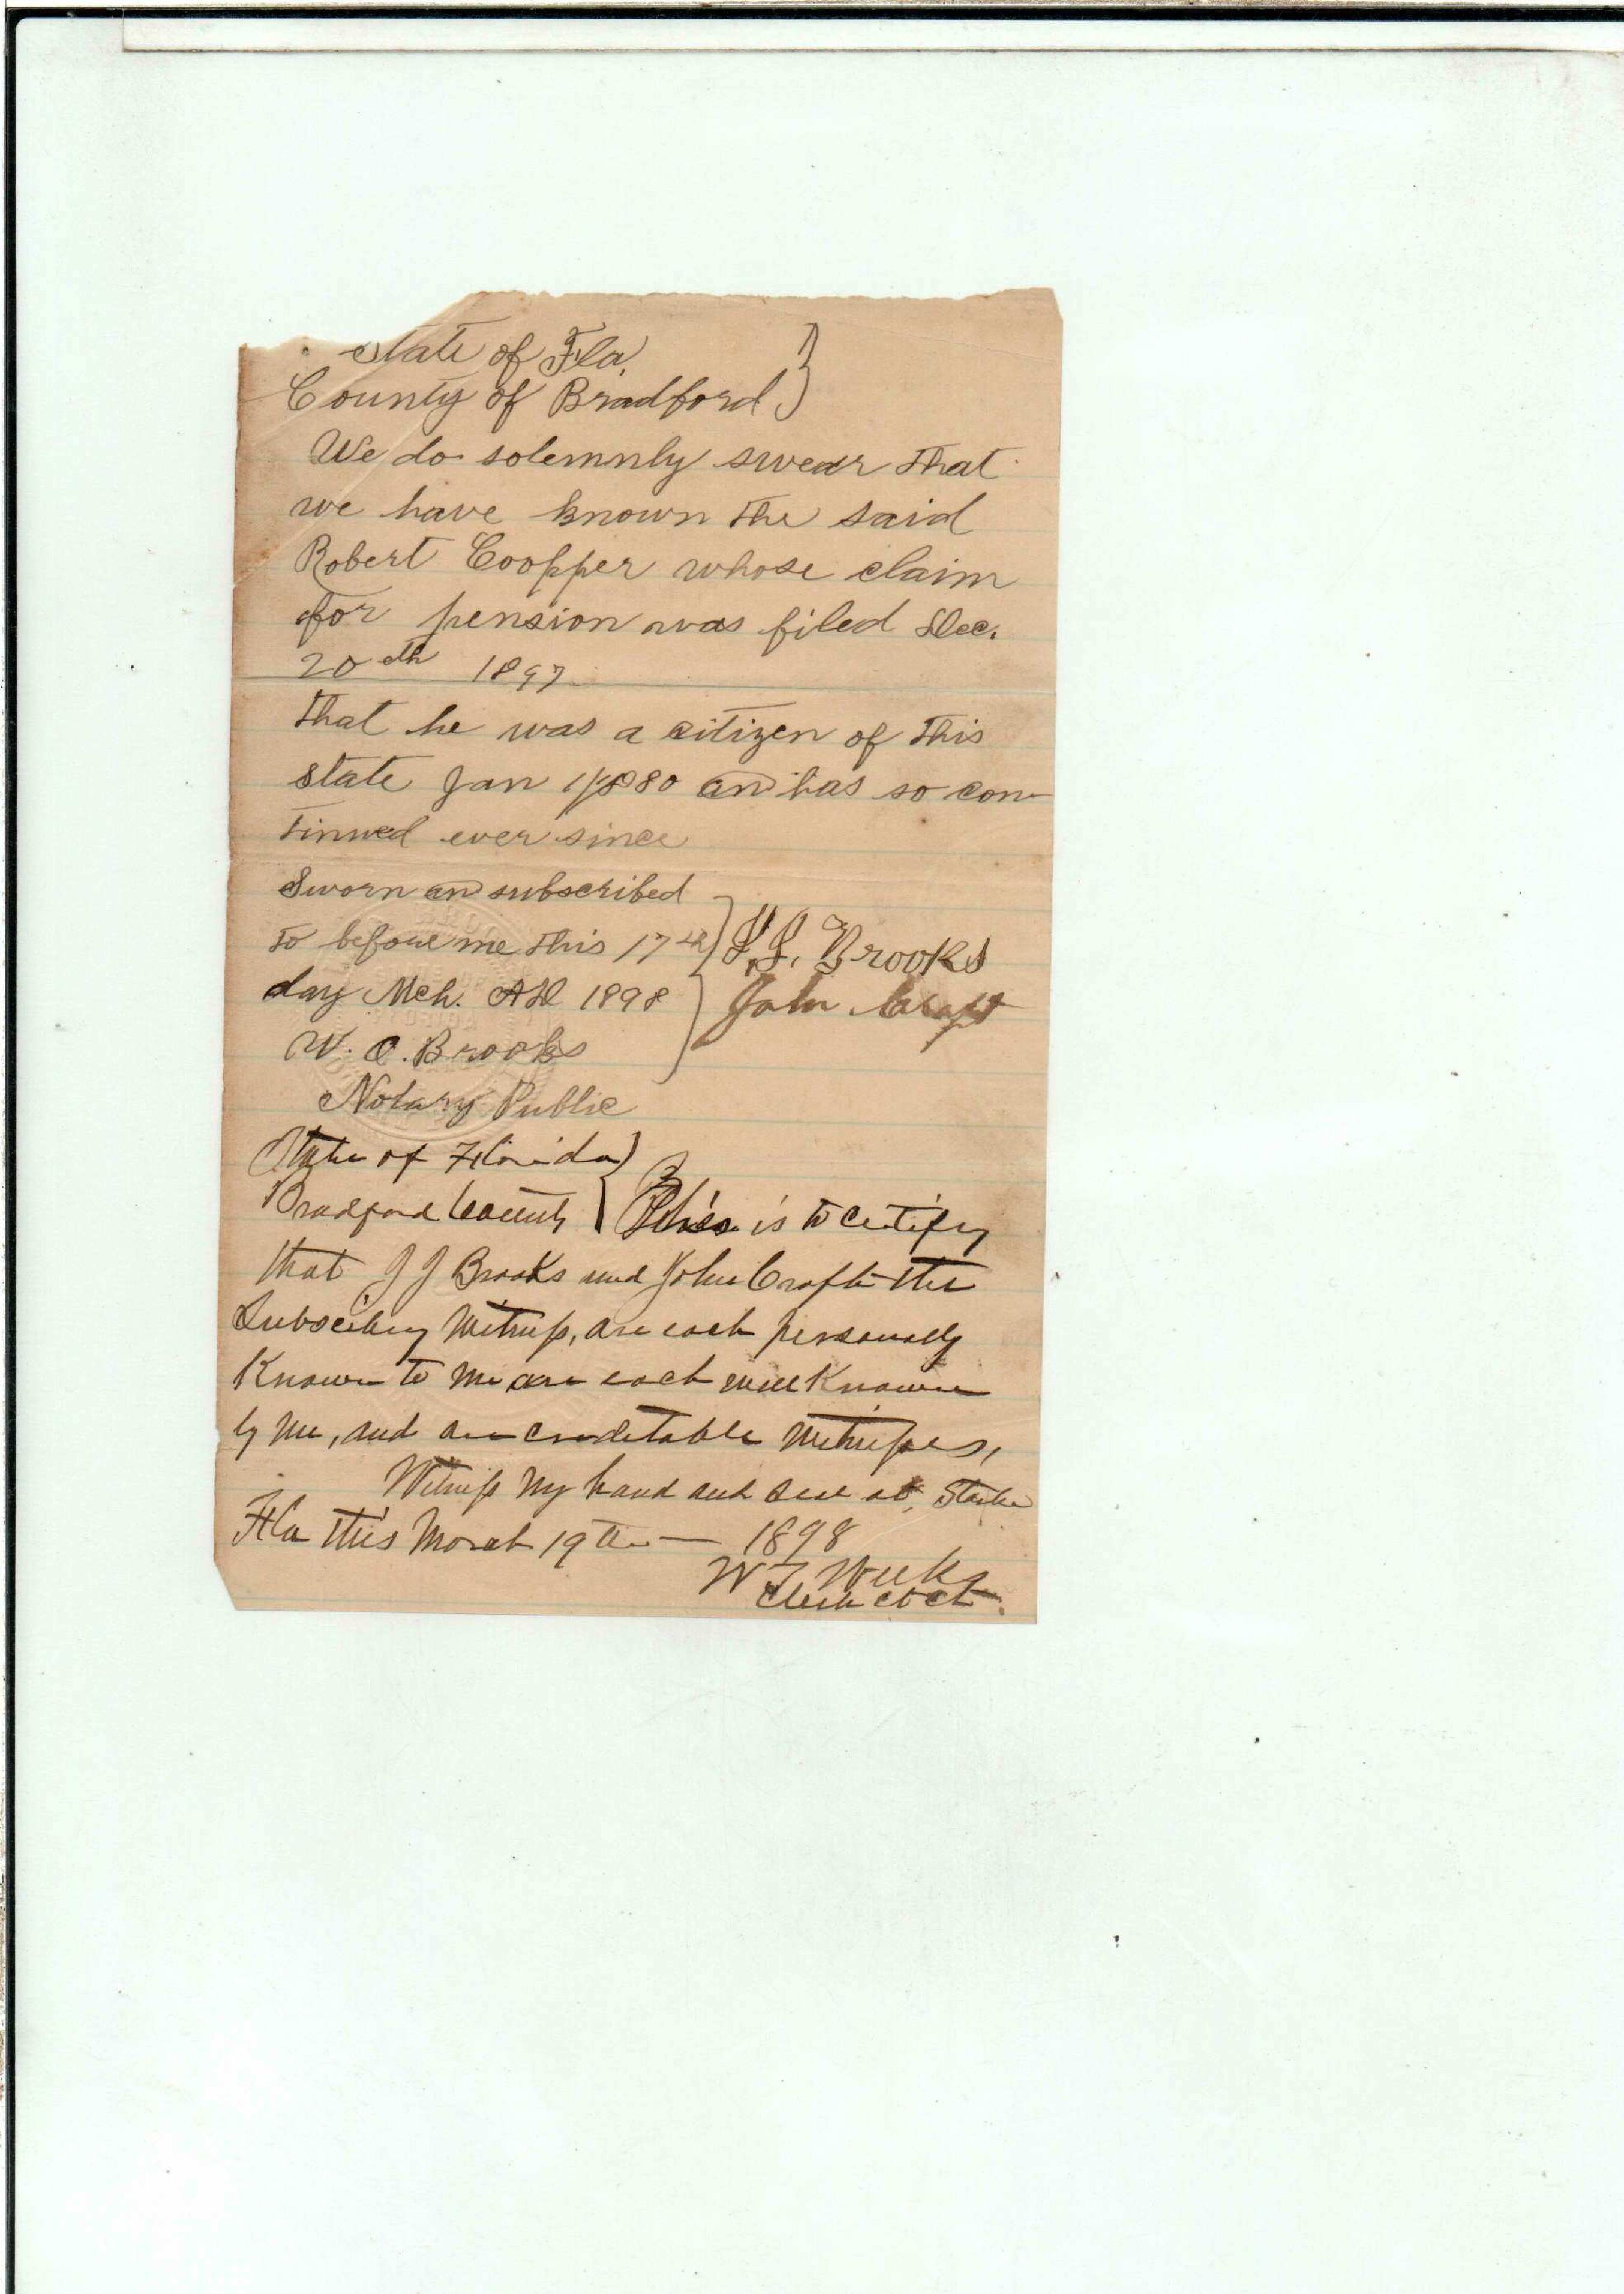 State of Fla.
County of Bradford
We do solemnly swear that
we have known the said
Robert Coopper whose claim
for pension was filed Dec.
20th 1897
That he was a citizen of this
state Jan 1/1880 and has so con-
tinued ever since
Sworn and subscribed
to before me this 17th
day Mch. AD 1898
J.J. Brooks
John Craft
W. C. Brooks
Notary Public
State of Florida
Bradford County This is to certify
that J J Brooks and John Craft the
Subscribing Witness, are each personally
Known to me are each well Known
by me, and are creditable Witnesses,
Witness my hand and seal at Starke
Fla this March 19th — 1898
W F Weeks
Clerk Ct Ct.